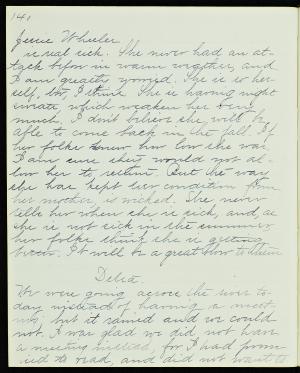 141
Jessie Wheeler
is real sick. She never had an at-
tack before in warm weather, and
I am greatly worried. She is so her-
self, too, I think. She is having night
sweats which weaken her very
much. I don't believe she will be
able to come back in the fall. If
her folks knew how low she was
I am sure they would not al-
low her to return. But the way
she has kept her condition from
her mother, is wicked. She never
tells her when she is sick, and, as
she is not sick in the summer,
her folks think she is getting
better. It will be a great blow to them
Debra.
We were going across the river to-
day instead of having a meet-
ing, but it rained and we could
not. I was glad we did not have
a meeting instead, for I had prom-
ised to read, and did not want to